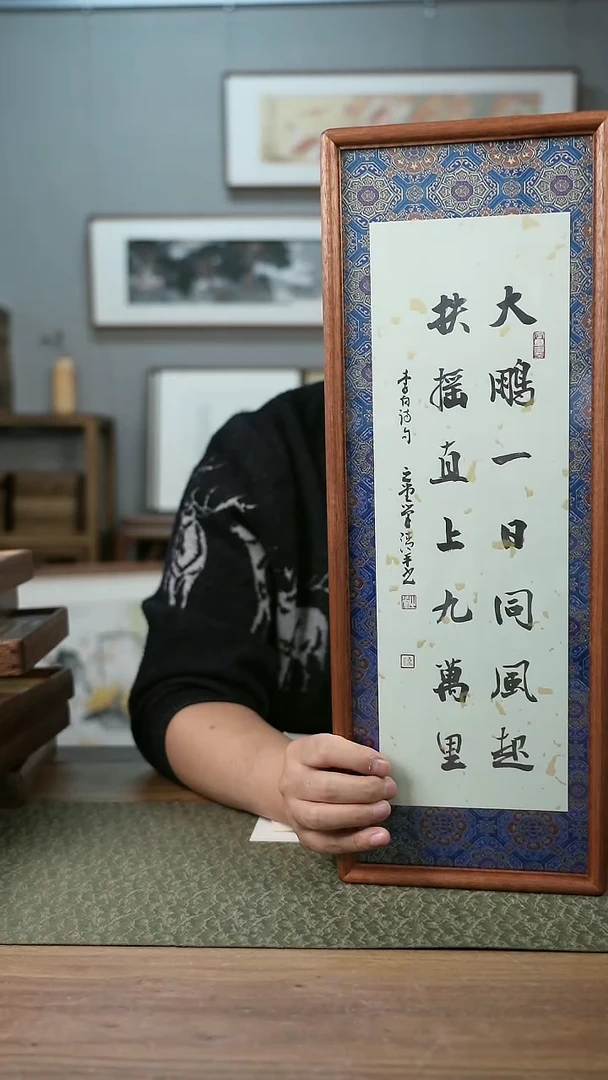 大鹏一日同風起
扶摇直上九萬里
李白诗句